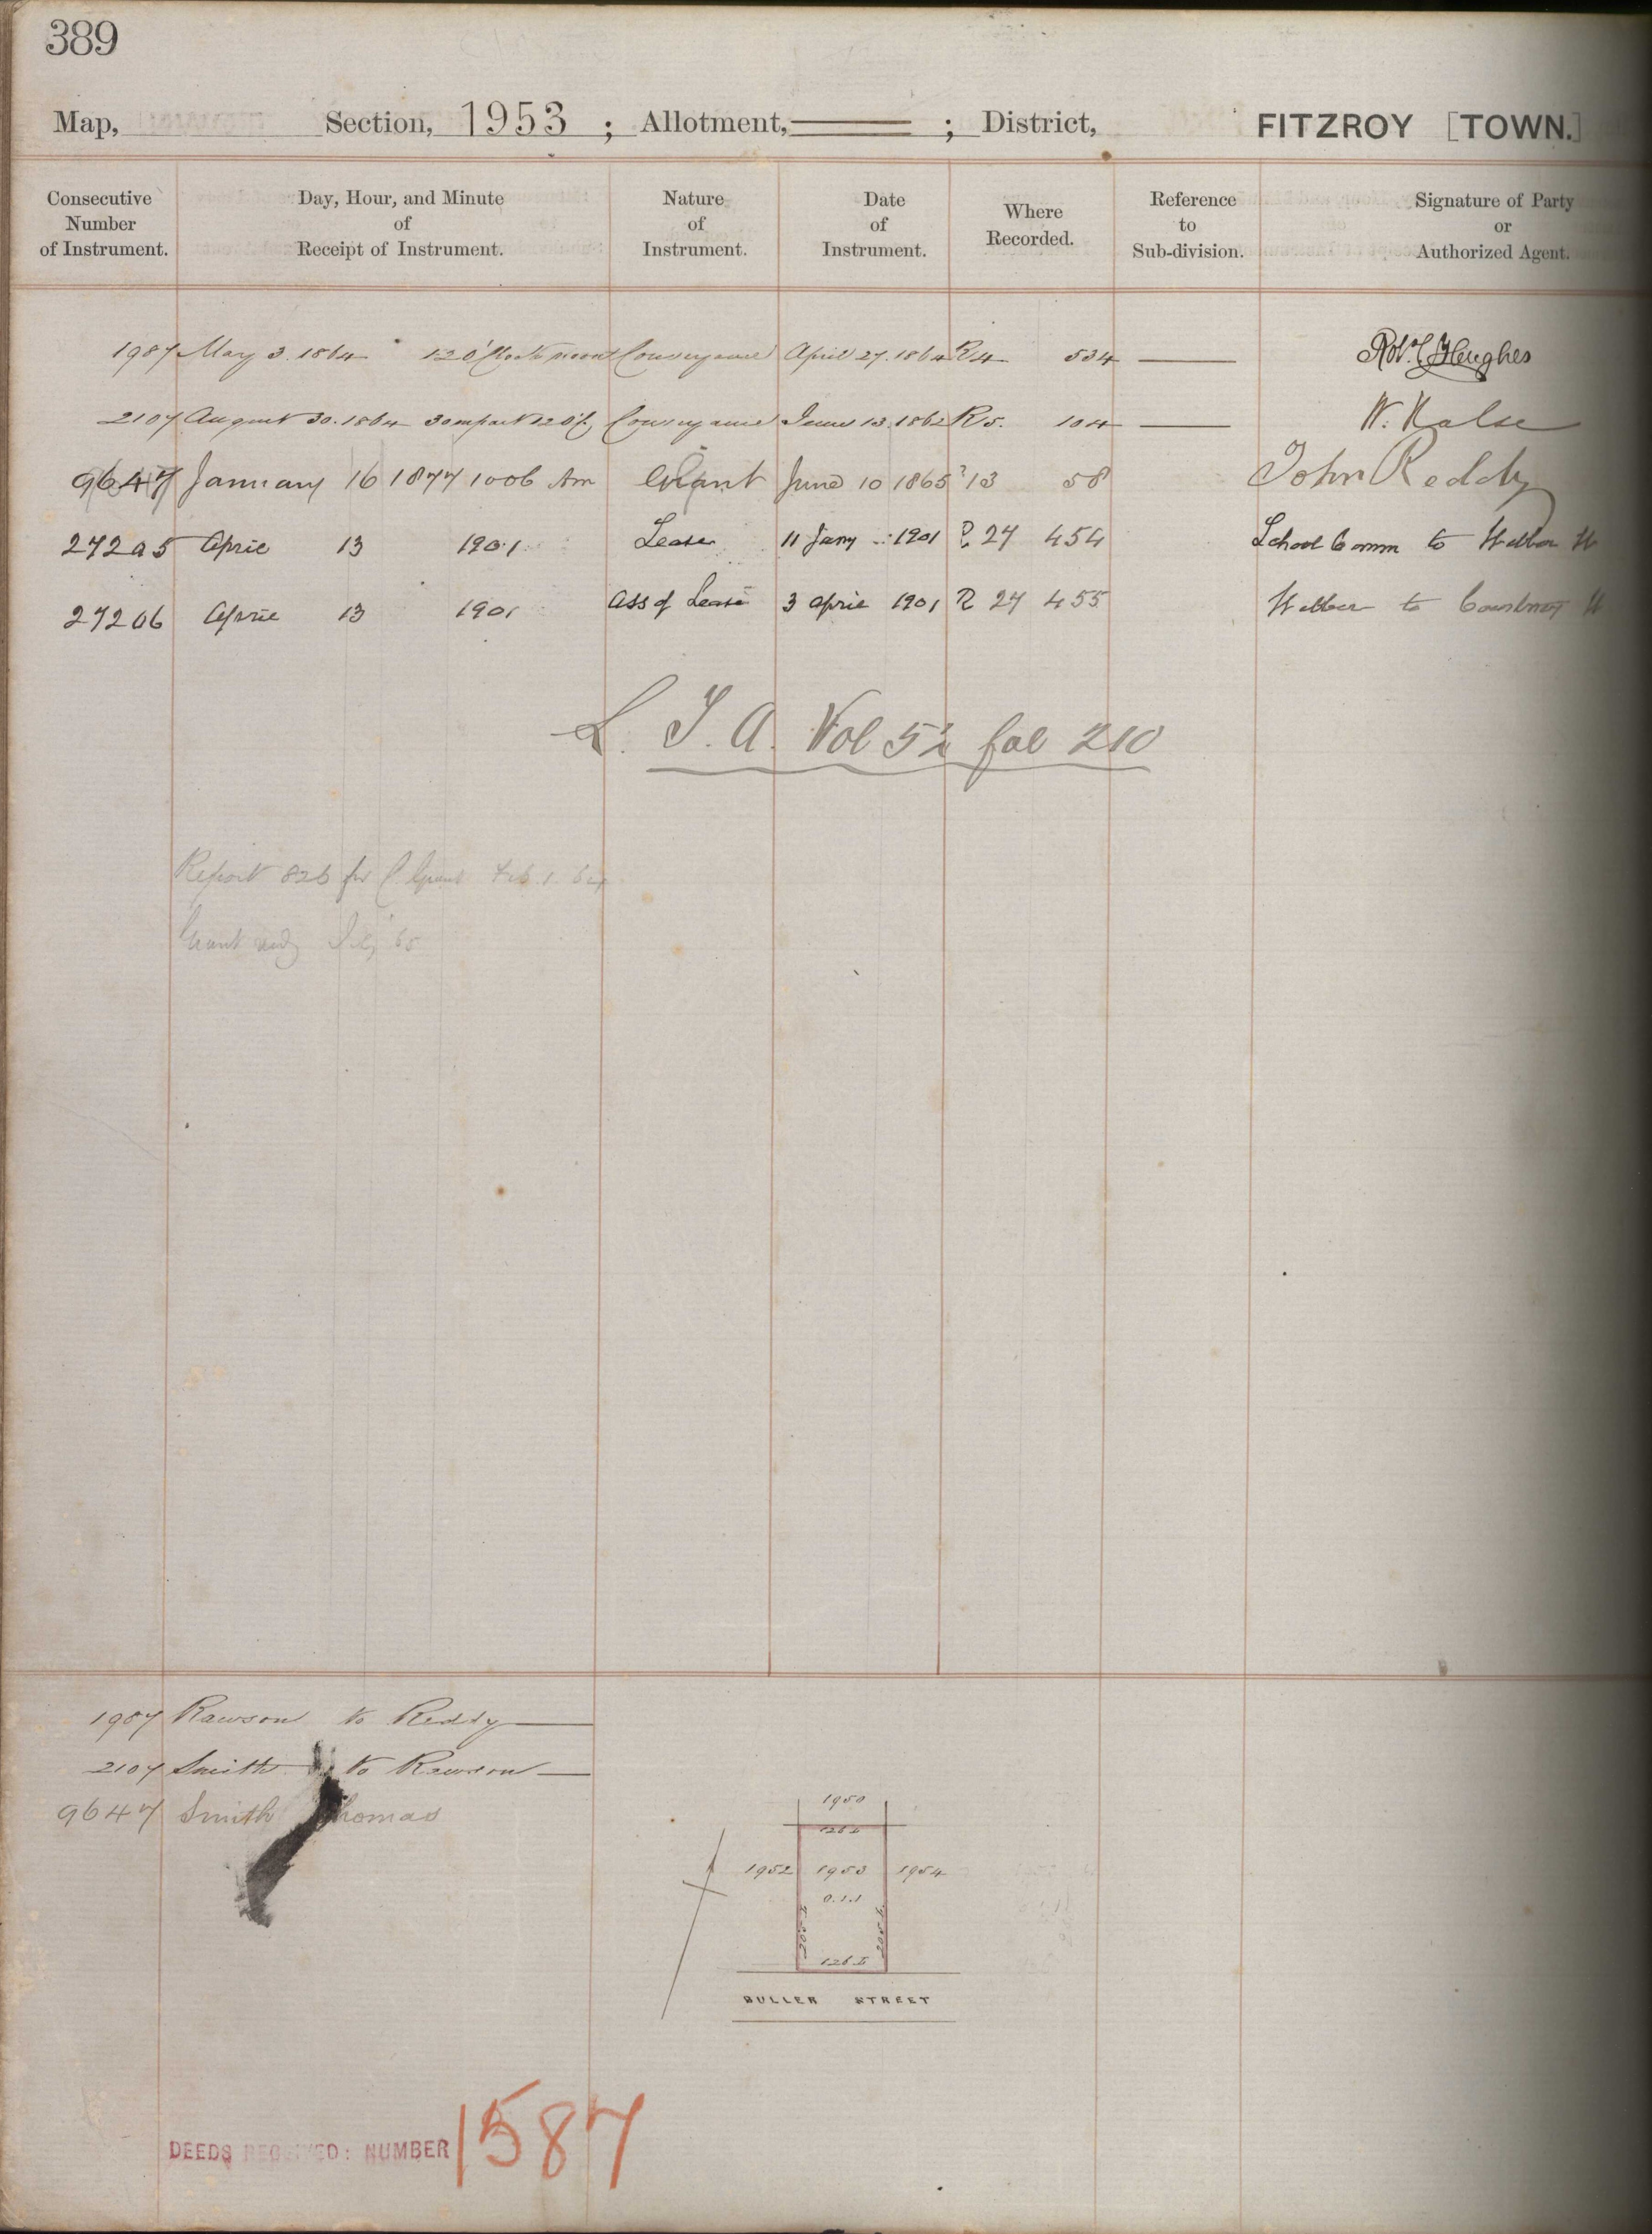 389
Map, Section, 1953 ; Allotment, ; District, FITZROY [TOWN.]
Consecutive Number of Instrument. Day, Hour, and Minute of Receipt of Instrument. Nature of Instrument. Date of Instrument. Where Recorded. Reference to Sub-division. Signature of Party or Authorized Agent.
1987 May 3. 1864 12 O'Clock noon Conveyance April 27. 1864 R4 534 Robt. C Hughes
2107 August 30. 1864 30 m past 12 O'C Conveyance June 13. 1862 R5. 104 W. Halse
9647 January 16 1877 10 06 Am Grant June 10 1865 13 58 John Reddy
27205 April 13 1901 Lease 11 Jany 1901 R 27 454 School Comm to Webber
27206 April 13 1901 Ass of Lease 3 April 1901 R 27 455 Webber to Courtney
L. T. A. Vol 52 fol 210
Report 826 for C Grant Feb. 1. 64
Grant
65
1987 Rawson to Reddy
2107 Smith to Rawson
9647 Smith Thomas
1950
126 L
1952 1953 1954
0.1.1
205 L 205 L
126 L
BULLER STREET
DEEDS RECEIVED: NUMBER 1587